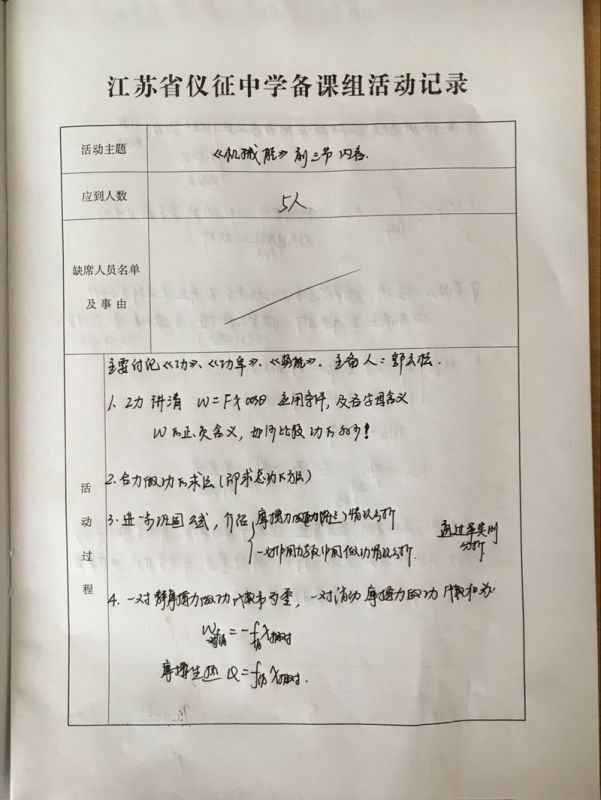 江苏省仪征中学备课组活动记录
活动主题 《机械能》前三节内容.
应到人数 5人
缺席人员名单
及事由
活动过程
主要讨论《功》、《功率》、《势能》. 主备人:郭云松.
1. 功 讲清 W=FXcosθ 适用条件, 及各字母含义
W的正负含义, 如何比较功的多少!
2. 合力做功的求法(即求总功的方法)
3. 进一步巩固公式, 介绍 摩擦力做功 情况分析
一对作用力与反作用力做功情况分析.
通过举实例
分析
4. 一对静摩擦力做功代数和为零, 一对滑动摩擦力做功代数和为
W = -f X相对
摩擦生热 Q = f X相对.